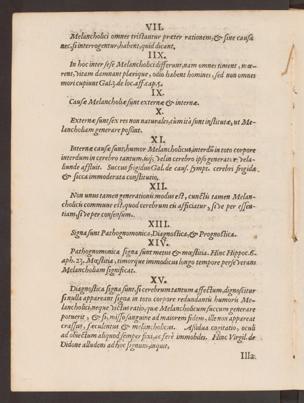 VII.
Melancholici omnes tristantur præter rationem, & sine causa
nec, si interrogentur, habent, quid dicant.
IIX.
In hoc inter sese Melancholici differunt, nam omnes timent, mœ-
rent, vitam damnant plærique, odio habent homines, sed non omnes
mori cupiunt Gal. 3. de loc. aff. cap. 5.
IX.
Causæ Melancholiæ sunt externæ & internæ.
X.
Externæ sunt sex res non naturales, cùm ita sunt institutæ, ut Me-
lancholiam generare possint.
XI.
Internæ causæ sunt, humor Melancholicus, interdũ in toto corpore
interdum in cerebro tantum, isq; vel in cerebro ipso generatur vela-
liunde affluit. Succus frigidus Gal. de caus. sympt. cerebri frigida
& sicca immoderata constitutio.
XII.
Non unus tamen generationis modus est, cunctis tamen Melan-
cholicis commune est, quod cerebrum eis afficiatur, sive per essen-
tiam, sive per consensum.
XIII.
Signa sunt Pathognomonica, Diagnostica, & Prognostica.
XIV.
Pathognomonica signa sunt metus & mæstitia. Hinc Hippoc. 6.
aph. 23. Mæstitia, timorque immodicus longo tempore perseverans
Melancholiam significat.
XV.
Diagnostica signa sunt, si cerebrum tantum affectum, dignoscitur
si nulla appareant signa in toto corpore redundantis humoris Me-
lancholici, neque victus ratio, quæ Melancholicum succum generare
potuerit, & si, misso sanguine ad majorem fidem, ille non appareat
crassus, fæculentus & melancholicus. Assidua cogitatio, oculi
ad obiectum aliquod semper fixi, ac ferè immobiles. Hinc Virgil. de
Didone alludens ad hoc signum, inquit,
Illa: